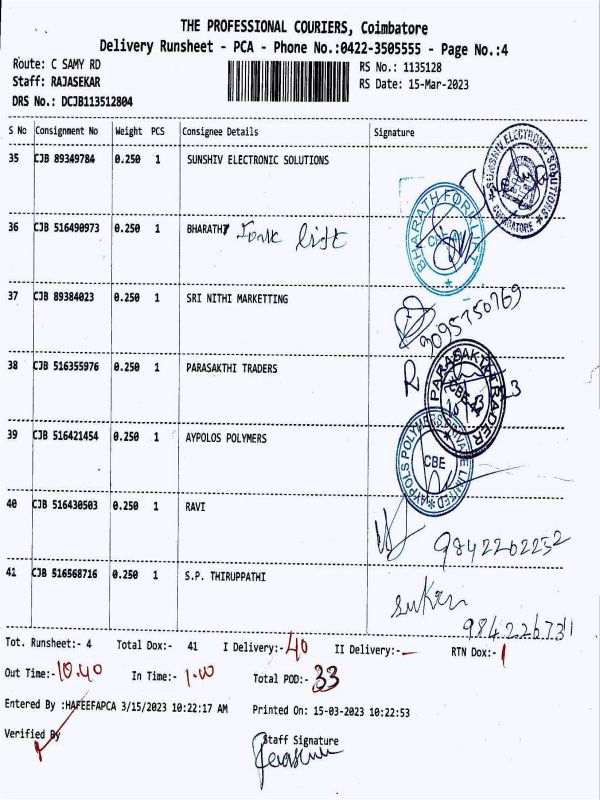 THE PROFESSIONAL COURIERS, Coimbatore
Delivery Runsheet - PCA - Phone No.:0422-3505555 - Page No.:4
Route: C SAMY RD
RS No.: 1135128
Staff: RAJASEKAR
RS Date: 15-Mar-2023
DRS No.: DCJB113512804
S No Consignment No Weight PCS Consignee Details Signature
35 CJB 89349784 0.250 1 SUNSHIV ELECTRONIC SOLUTIONS
SUNSHIV ELECTRONIC SOLUTIONS
COIMBATORE
36 CJB 516490973 0.250 1 BHARATH
BHARATH FORKLIFT
37 CJB 89384023 0.250 1 SRI NITHI MARKETTING
9095750769
38 CJB 516355976 0.250 1 PARASAKTHI TRADERS
PARASAKTHI TRADER
CBE
39 CJB 516421454 0.250 1 AYPOLOS POLYMERS
AYPOLS POLYMERS PRIVATE LIMITED
CBE
40 CJB 516430503 0.250 1 RAVI
9842202252
41 CJB 516568716 0.250 1 S.P. THIRUPPATHI
984226731
Tot. Runsheet:- 4 Total Dox:- 41 I Delivery:- 40 II Delivery:- — RTN Dox:- 1
Out Time:- 10.40 In Time:- 1.00 Total POD:- 33
Entered By :HAFEEFAPCA 3/15/2023 10:22:17 AM Printed On: 15-03-2023 10:22:53
Verified By
Staff Signature